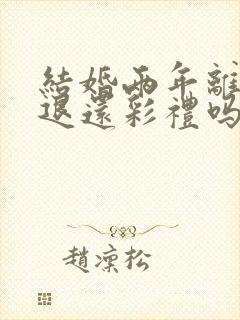 結婚兩年離
退還彩禮嗎
趙凜松